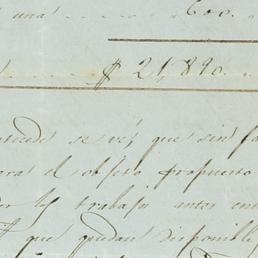 una 600.
$ 21,890.
antecede se vé, que sin fa
para el objeto propuesto
por los trabajos antes en
Y que quedan disponibles